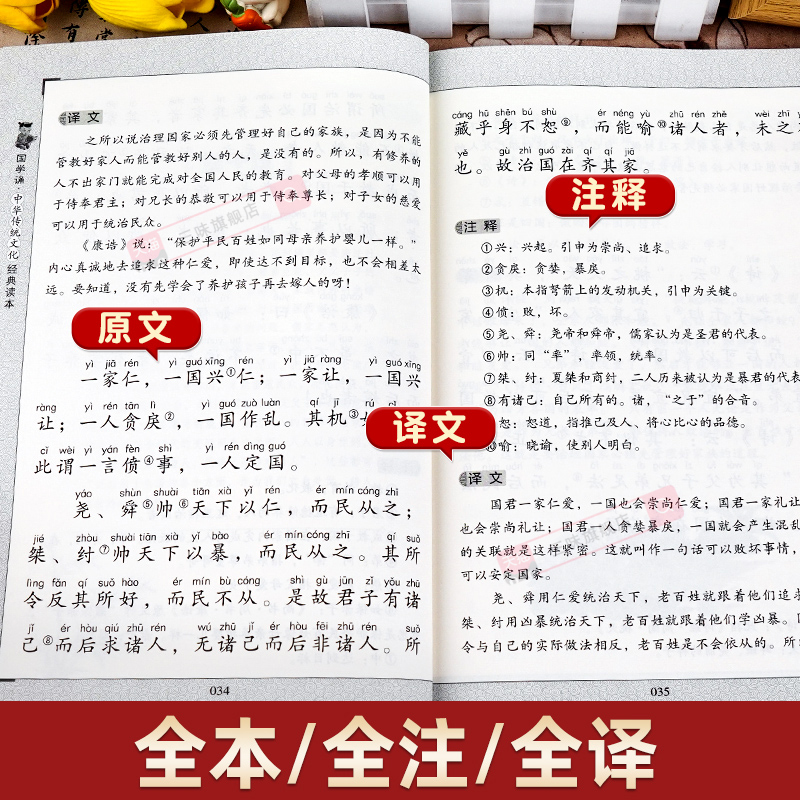 国学诵·中华传统文化经典读本
译文
之所以说治理国家必须先管理好自己的家族，是因为不能
管教好家人而能管教好别人的人，是没有的。所以，有修养的
人不出家门就能完成对全国人民的教育。对父母的孝顺可以用
于侍奉君主；对兄长的恭敬可以用于侍奉尊长；对子女的慈爱
可以用于统治民众。
《康诰》说：“保护平民百姓如同母亲养护婴儿一样。”
内心真诚地去追求这种仁爱，即使达不到目标，也不会相差太
远。要知道，没有先学会了养护孩子再去嫁人的呀！
原文
yì jiā rén yì guó xīng rén yì jiā ràng yì guó xīng
一家仁，一国兴①仁；一家让，一国兴
ràng yì rén tān lì yì guó zuò luàn qí jī rú cǐ
让；一人贪戾②，一国作乱。其机③
cǐ wèi yì yán fèn shì yì rén dìng guó
此谓一言偾④事，一人定国。
yáo shùn shuài tiān xià yǐ rén ér mín cóng zhī
尧、舜⑤帅⑥天下以仁，而民从之；
jié zhòu shuài tiān xià yǐ bào ér mín cóng zhī qí suǒ
桀、纣⑦帅天下以暴，而民从之。其所
lìng fǎn qí suǒ hào ér mín bù cóng shì gù jūn zǐ yǒu zhū
令反其所好，而民不从。是故君子有诸
jǐ ér hòu qiú zhū rén wú zhū jǐ ér hòu fēi zhū rén suǒ
己⑧而后求诸人，无诸己而后非诸人。所
034
cáng hū shēn bú shù ér néng yù zhū rén zhě wèi zhī
藏乎身不恕⑨，而能喻⑩诸人者，未之
yě gù zhì guó zài qí qí jiā
也。故治国在齐其家。
注释
注释
①兴：兴起。引申为崇尚、追求。
②贪戾：贪婪，暴戾。
③机：本指弩箭上的发动机关，引申为关键。
④偾：败，坏。
⑤尧、舜：尧帝和舜帝，儒家认为是圣君的代表。
⑥帅：同“率”，率领，统率。
⑦桀、纣：夏桀和商纣，二人历来被认为是暴君的代表
⑧有诸己：自己所有的。诸，“之于”的合音。
恕：恕道，指推己及人、将心比心的品德。
⑩喻：晓谕，使别人明白。
译文
译文
国君一家仁爱，一国也会崇尚仁爱；国君一家礼让
也会崇尚礼让；国君一人贪婪暴戾，一国就会产生混乱
的关联就是这样紧密。这就叫作一句话可以败坏事情，
可以安定国家。
尧、舜用仁爱统治天下，老百姓就跟着他们追求
桀、纣用凶暴统治天下，老百姓就跟着他们学凶暴。
令与自己的实际做法相反，老百姓是不会依从的。所
035
全本/全注/全译